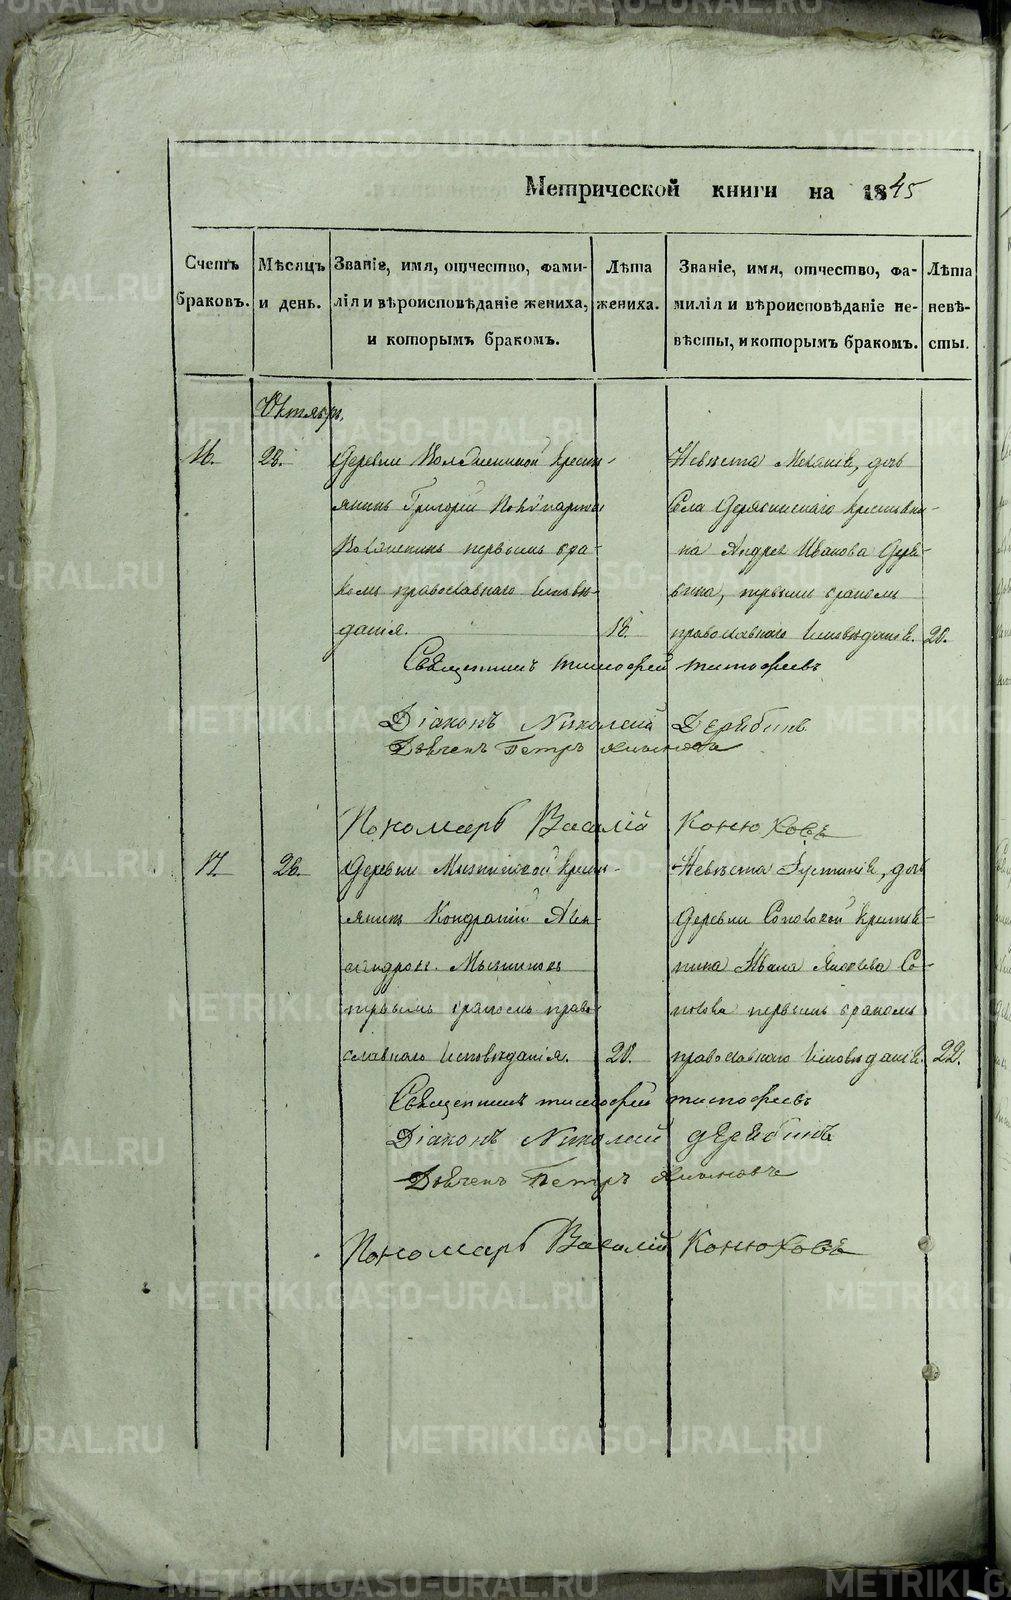 Метрической книги на 1845
Счетъ браковъ.
Мѣсяцъ и день.
Званіе, имя, отчество, фами-
лія и вѣроисповѣданіе жениха,
и которымъ бракомъ.
Лѣта жениха.
Званіе, имя, отчество, фа-
милія и вѣроисповѣданіе не-
вѣсты, и которымъ бракомъ.
Лѣта невѣ-
сты.
Октябрь.
16.
28.
Деревни крестъ-
янинъ Григорій
первымъ бра-
комъ православнаго исповѣ-
данія.
18.
Невѣста дочь
Села крестьяни-
на Андрея Иванова Деря-
бина, первымъ бракомъ
православнаго исповѣданія. 20.
Священникъ Тимофей
Діаконъ Николай Дерябинъ
Дьячекъ Петръ
Пономарь Василій Конюховъ
17.
26.
Деревни крестъ-
янинъ Кондратій Алек-
сандровъ
первымъ бракомъ право-
славнаго исповѣданія.
20.
Невѣста Іустинія, дочь
Деревни Соповской крестья-
нина Ивана Яковлева Со-
попова первымъ бракомъ
православнаго исповѣданія. 22.
Священникъ Тимофей
Діаконъ Николай Дерябинъ
Дьячекъ Петръ
Пономарь Василій Конюховъ
METRIKI.GASO-URAL.RU